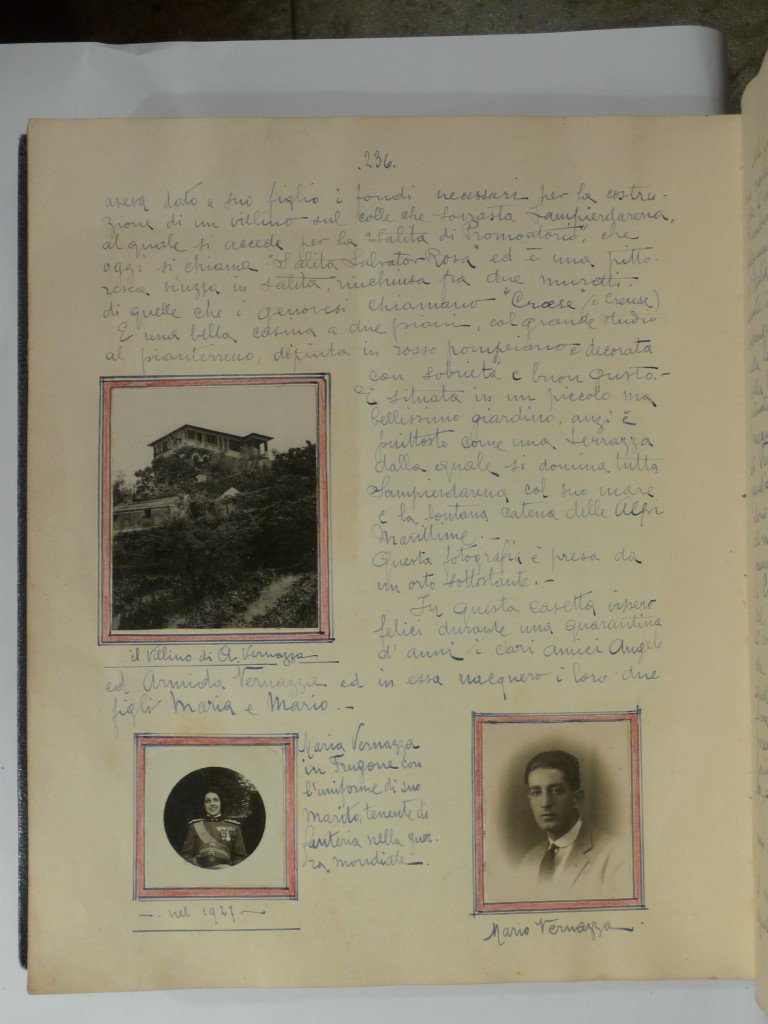 .236.
aveva dato a suo figlio i fondi necessari per la costru-
zione di un villino sul colle che sovrasta Sampierdarena,
al quale si accede per la "Salita di Promontorio", che
oggi si chiama "Salita Salvator Rosa" ed è una pitto-
resca viuzza in salita, rinchiusa fra due muretti
di quelle che i genovesi chiamano "Cröese" (o Creuse)
È una bella casina a due piani, col grande studio
al pianterreno, dipinta in rosso pompeiano e decorata
con sobrietà e buon gusto.-
È situata in un piccolo ma
bellissimo giardino, anzi è
piuttosto come una terrazza
dalla quale si domina tutta
Sampierdarena col suo mare
e la lontana catena delle Alpi
Marittime. -
Questa fotografia è presa da
un orto sottostante. -
In questa casetta vissero
felici durante una quarantina
d'anni i cari amici Angelo
il Villino di A. Vernazza
ed Armida Vernazza ed in essa nacquero i loro due
figli Maria e Mario. -
Maria Vernazza
in Frugone con
l'uniforme di suo
Marito, tenente di
fanteria nella guer-
ra mondiale.
-. nel 1927 -
Mario Vernazza.